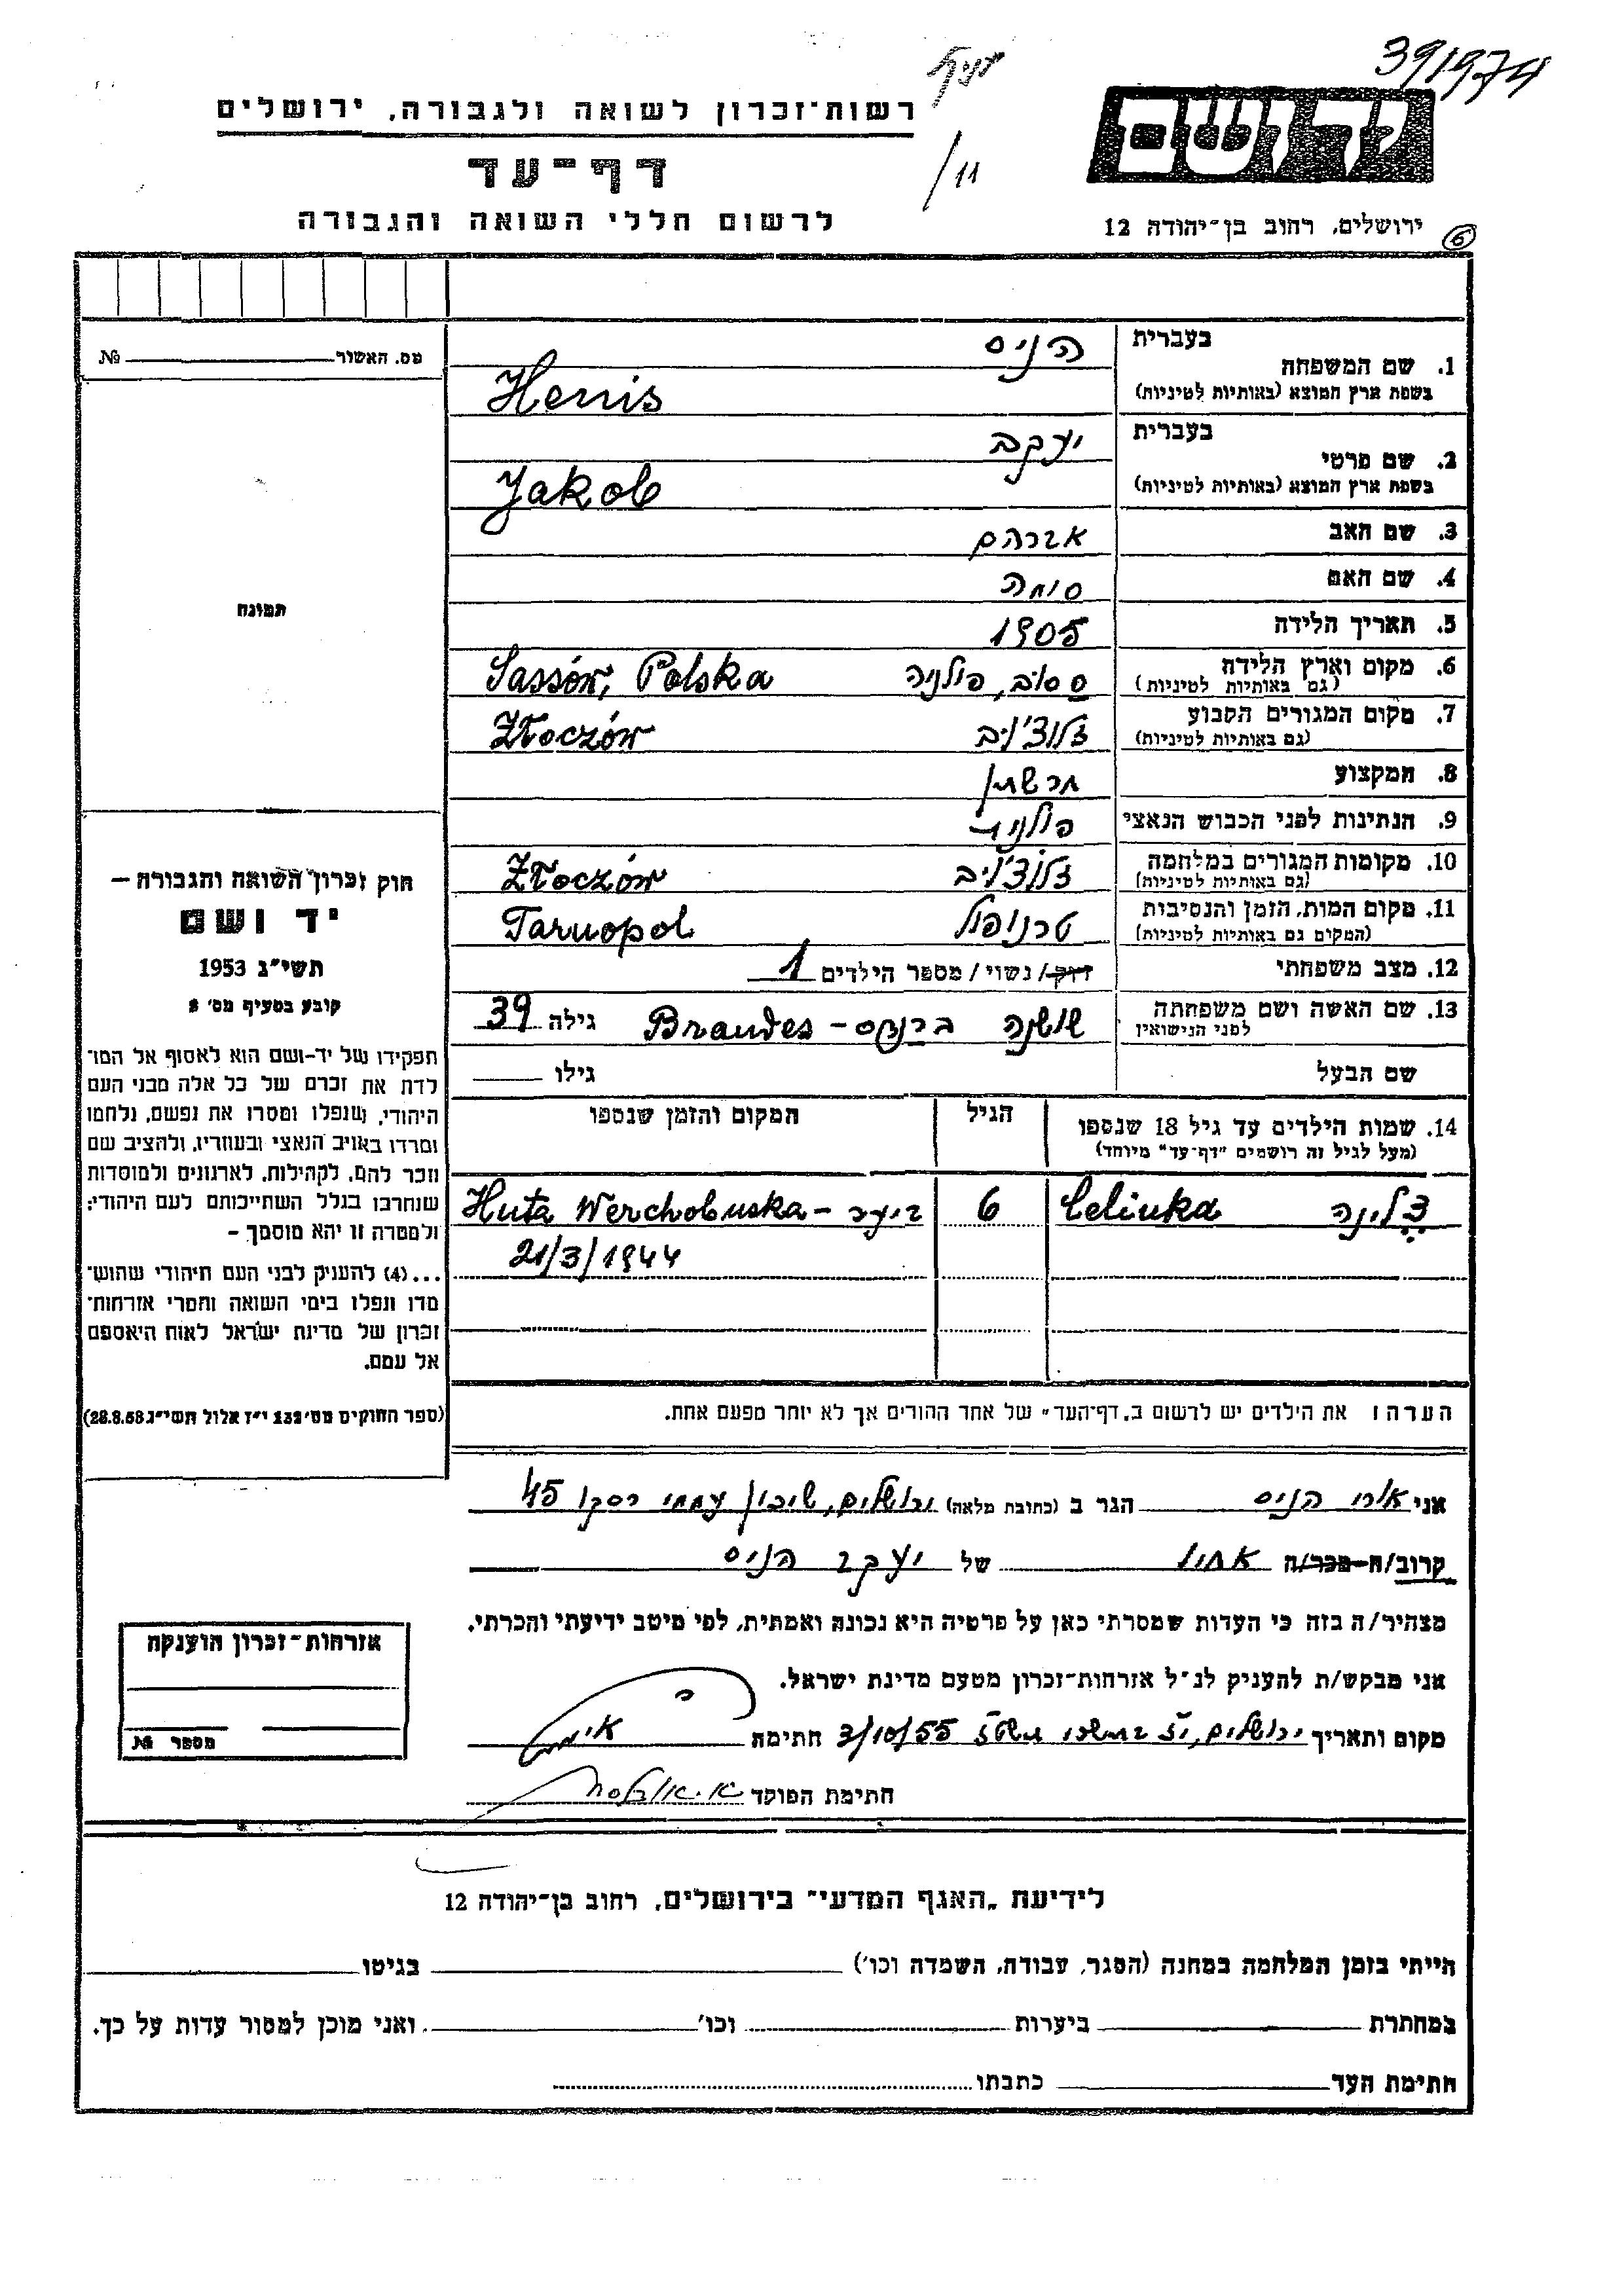 391974
רשות־זכרון לשואה ולגבורה, ירושלים
דף־עד
11/
לרשום חללי השואה והגבורה
ידושם
ירושלים, רחוב בן־יהודה 12
6
מס. האשור № 
בעברית
1. שם המשפחה
הניס
בשפת ארץ המוצא (באותיות לטיניות)
Henis
בעברית
2. שם פרטי
יעקב
בשפת ארץ המוצא (באותיות לטיניות)
Jakob
3. שם האב אברהם
4. שם האם סומה
תמונה
5. תאריך הלידה 1905
6. מקום וארץ הלידה ססוב, פולניה Sassów, Polska
(גם באותיות לטיניות)
7. מקום המגורים הקבוע זלוצ'וב Złoczów
(גם באותיות לטיניות)
8. המקצוע
9. הנתינות לפני הכבוש הנאצי פולנית
10. מקומות המגורים במלחמה זלוצ'וב Złoczów
(גם באותיות לטיניות)
11. מקום המות, הזמן והנסיבות טרנופול Tarnopol
(המקום גם באותיות לטיניות)
12. מצב משפחתי רווק/ נשוי/ מספר הילדים 1
13. שם האשה ושם משפחתה שושנה ברנדס – Brandes גילה 39
לפני הנישואין
שם הבעל גילו
14. שמות הילדים עד גיל 18 שנספו הגיל המקום והזמן שנספו
(מעל לגיל זה רושמים "דף־עד" מיוחד)
צלינה Celinka 6 ביער – Huta Werchobuska
21/3/1944
חוק זכרון השואה והגבורה –
יד ושם
תשי"ג 1953
קובע בסעיף מס' 2
תפקידו של יד-ושם הוא לאסוף אל המו־
לדת את זכרם של כל אלה מבני העם
היהודי, שנפלו ומסרו את נפשם, נלחמו
ומרדו באויב הנאצי ובעוזריו, ולהציב שם
וזכר להם, לקהילות, לארגונים ולמוסדות
שנחרבו בגלל השתייכותם לעם היהודי;
ולמטרה זו יהא מוסמך –
...(4) להעניק לבני העם היהודי שהוש־
מדו ונפלו בימי השואה והמרי אזרחות־
זכרון של מדינת ישראל לאות היאספם
אל עמם.
(ספר החוקים מס' 132 י"ז אלול תשי"ג 28.8.53)
הערה: את הילדים יש לרשום ב„דף־העד" של אחד ההורים אך לא יותר מפעם אחת.
אני אורי הניס הגר ב (כתובת מלאה) ירושלים, שיכון עממי רסקו 45
קרוב/ה מכר/ה אחיו של יעקב הניס
מצהיר/ה בזה כי העדות שמסרתי כאן על פרטיה היא נכונה ואמתית, לפי מיטב ידיעתי והכרתי.
אני מבקש/ת להעניק לנ"ל אזרחות־זכרון מטעם מדינת ישראל.
מקום ותאריך ירושלים, י"ז בתשרי תשט"ז 3/10/55 חתימה
חתימת הפוקד
אזרחות־זכרון הוענקה
מספר №
לידיעת „האגף המדעי" בירושלים, רחוב בן־יהודה 12
הייתי בזמן המלחמה במחנה (הסגר, עבודה, השמדה וכו') בגיטו
במחתרת ביערות וכו' ואני מוכן למסור עדות על כך.
חתימת העד כתבתו